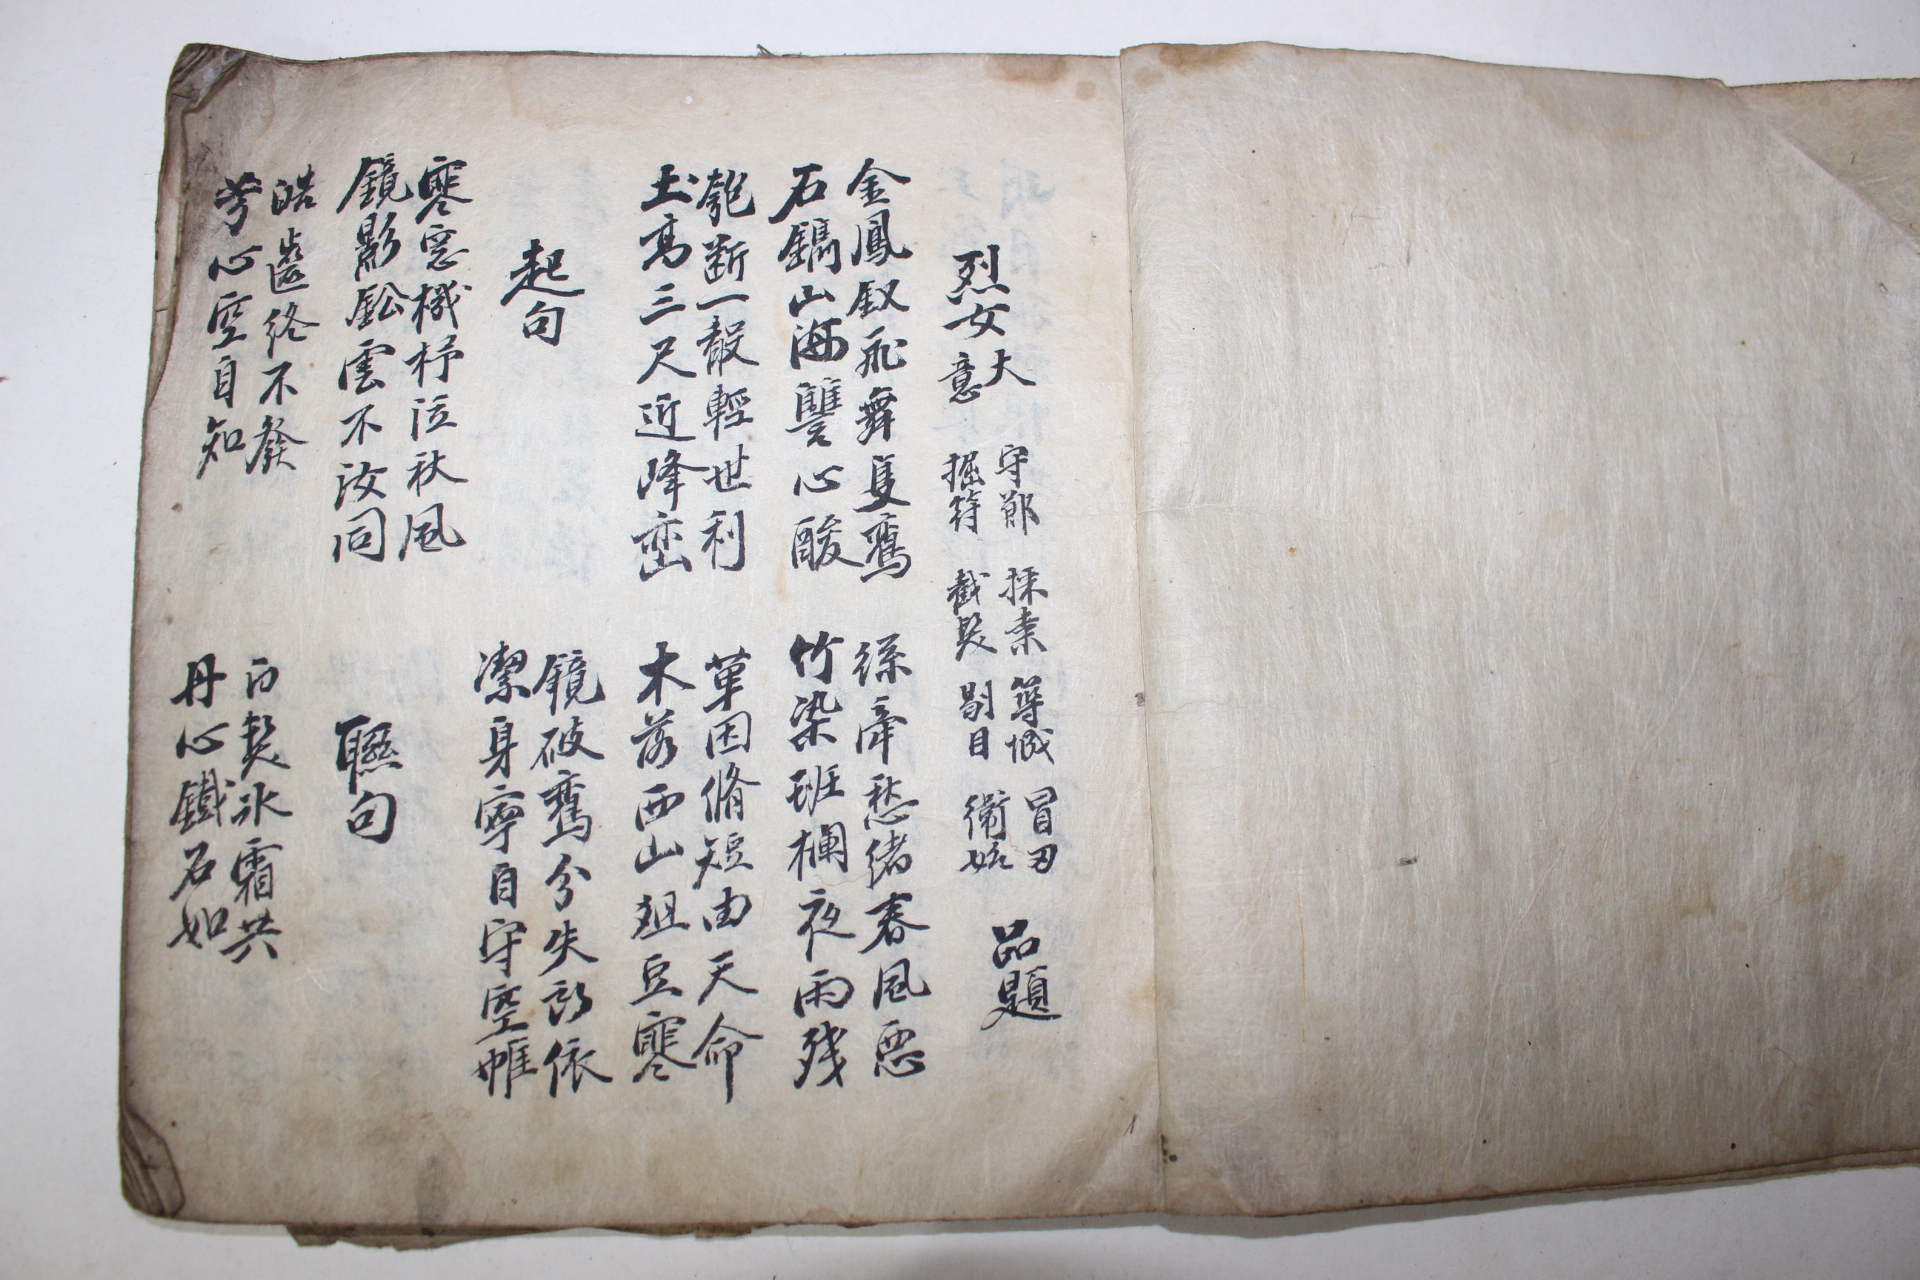 烈女 大意 守節 採桑 築城 冒刃 品題
掘符 截髮 剔目 衛姑
金鳳釵飛舞隻鸞
石鐫山海讐心酸
絲牽愁緒春風惡
竹染班欄夜雨殘
匏斷一殼輕世利
土高三尺近峰巒
茵脩短由天命
木落西山俎豆寒
起句
鏡破鸞分失所依
潔身寧自守空帷
寒窓機杼泣秋風
鏡影釵雲不汝同
聯句
皓齒終不發
芳心空自知
白髮氷霜共
丹心鐵石如